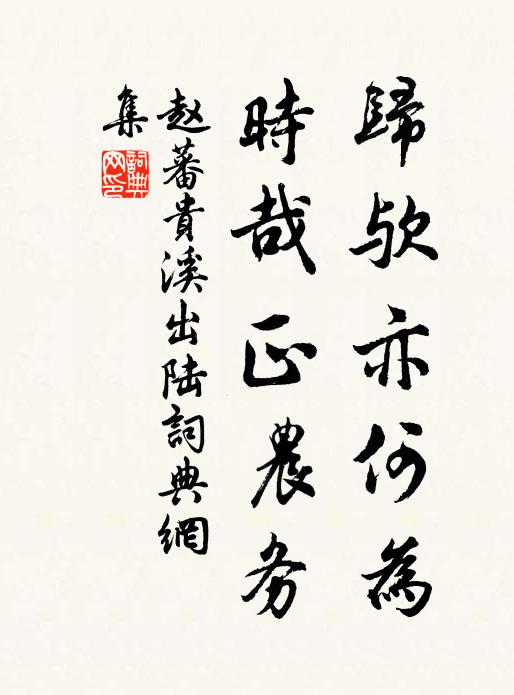 歸欤亦何為
時哉正農务
赵蕃貴溪出陆詞典網
集
詞典网印